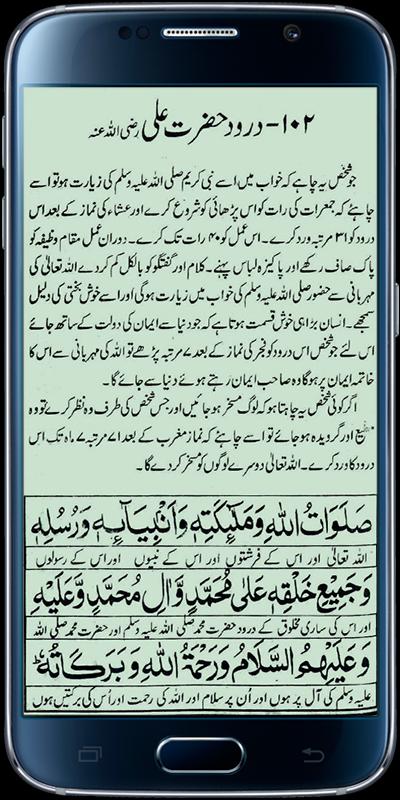 SAMSUNG
۱۰۲- درود حضرت علی رضی اللہ عنہ
جو شخص یہ چاہے کہ خواب میں اسے نبی کریم صلی اللہ علیہ وسلم کی زیارت ہو تو اسے
چاہئے کہ جمعرات کی رات کو اس پڑھائی کو شروع کرے اور عشاء کی نماز کے بعد اس
درود کو ۳۱ مرتبہ ورد کرے۔ اس عمل کو ۴۰ رات تک کرے۔ دوران عمل مقام وظیفہ کو
پاک صاف رکھے اور پاکیزہ لباس پہنے۔ کلام اور گفتگو کو بالکل کم کر دے اللہ تعالیٰ کی
مہربانی سے حضور صلی اللہ علیہ وسلم کی خواب میں زیارت ہو گی اور اسے خوش بختی کی دلیل
سمجھے۔ انسان بڑا ہی خوش قسمت ہوتا ہے کہ جو دنیا سے ایمان کی دولت کے ساتھ جائے
اس لئے جو شخص اس درود کو فجر کی نماز کے بعد ۷ مرتبہ پڑھے تو اللہ کی مہربانی سے اس کا
خاتمہ ایمان پر ہو گا وہ صاحب ایمان رہتے ہوئے دنیا سے جائے گا۔
اگر کوئی شخص یہ چاہتا ہو کہ لوگ مسخر ہو جائیں اور جس شخص کی طرف وہ نظر کرے تو وہ
مطیع اور گرویدہ ہو جائے تو اسے چاہئے کہ نماز مغرب کے بعد ۷۱ مرتبہ ۷ ماہ تک اس
درود کا ورد کرے۔ اللہ تعالیٰ دوسرے لوگوں کو مسخر کر دے گا۔
صَلَوَاتُ اللّٰهِ وَمَلٰٓئِكَتِهٖ وَاَنْۢبِيَآئِهٖ وَرُسُلِهٖ
اللہ تعالیٰ اور اس کے فرشتوں اور اس کے نبیوں اور اس کے رسولوں
وَجَمِيْعِ خَلْقِهٖ عَلٰى مُحَمَّدٍ وَّاٰلِ مُحَمَّدٍ وَّعَلَيْهِ
اور اس کی ساری مخلوق کے درود حضرت محمد صلی اللہ علیہ وسلم اور حضرت محمد صلی اللہ
وَعَلَيْهِمُ السَّلَامُ وَرَحْمَةُ اللّٰهِ وَبَرَكَاتُهٗ ط
علیہ وسلم کی آل پر ہوں اور اُن پر سلام اور اللہ کی رحمت اور اُس کی برکتیں ہوں